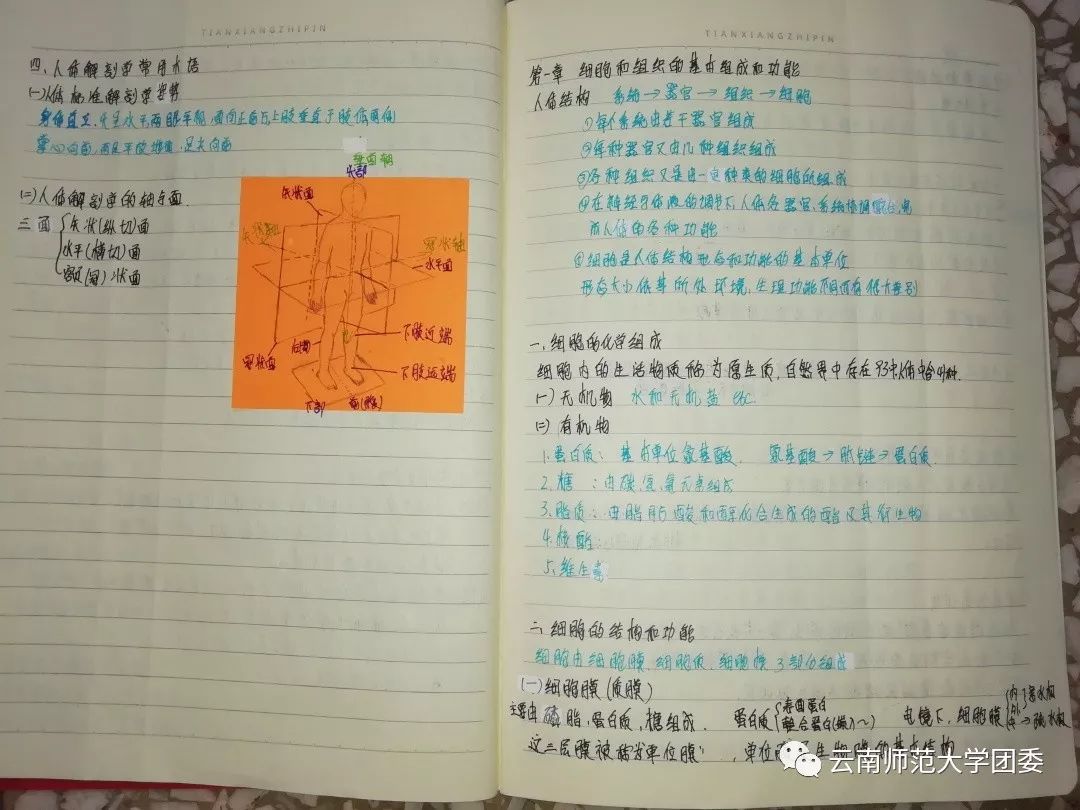 TIANXIANGZHIPIN
四、人体解剖学常用术语
(一)人体标准解剖学姿势
身体直立,
掌心向前,两足平放地面,足尖向前
(二)人体解剖学的轴与面.
三面 矢状(纵切)面
水平(横切)面
额(冠)状面
垂直轴
头部
矢状面
矢状轴
冠状轴
水平面
下肢近端
冠状面
下肢远端
下部
前(腹)
TIANXIANGZHIPIN
第一章 细胞和组织的基本组成和功能
人体结构 系统→器官→组织→细胞
①每个系统由若干器官组成
②每种器官又由几种组织组成
③各种组织又是由一定种类的细胞所组成
④在神经与体液的调节下,人体各器官、系统协调配合,完
成人体的各种功能
细胞是人体结构形态和功能的基本单位
形态大小依其所处环境、生理功能不同而有很大差别
一、细胞的化学组成
细胞内的生活物质称为原生质,自然界中存在
(一)无机物 水和无机盐 etc.
(二)有机物
1.蛋白质: 基本单位氨基酸. 氨基酸→肽链→蛋白质.
2.糖 :由碳、氢、氧元素组成
3.脂质:由脂肪酸和醇化合生成的酯及其衍生物
4.核酸:
5、维生素
二、细胞的结构和功能
细胞由细胞膜、细胞质、细胞核3部分组成
(一)细胞膜(质膜)
主要由磷脂、蛋白质、糖组成. 蛋白质 表面蛋白 电镜下,细胞膜 内
镶嵌蛋白 外 亲水极
中→疏水极
这三层膜被称为单位膜", 单位
云南师范大学团委